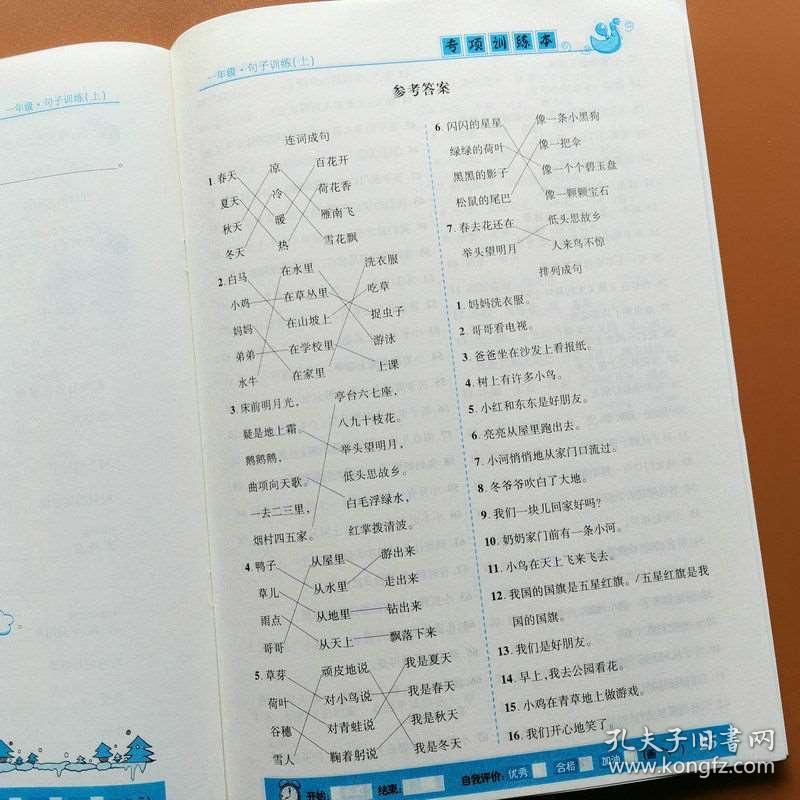 一年级·句子训练(上)
一年级·句子训练(上)
专项训练本
参考答案
连词成句
1.春天 凉 百花开
夏天 冷 荷花香
秋天 暖 雁南飞
冬天 热 雪花飘
2.白马 在水里 洗衣服
小鸡 在草丛里 吃草
妈妈 在山坡上 捉虫子
弟弟 在学校里 游泳
水牛 在家里 上课
3.床前明月光, 亭台六七座,
疑是地上霜。 八九十枝花。
鹅鹅鹅, 举头望明月,
曲项向天歌。 低头思故乡。
一去二三里, 白毛浮绿水,
烟村四五家。 红掌拨清波。
4.鸭子 从屋里 游出来
草儿 从水里 走出来
雨点 从地里 钻出来
哥哥 从天上 飘落下来
5.草芽 顽皮地说 我是夏天
荷叶 对小鸟说 我是春天
谷穗 对青蛙说 我是秋天
雪人 鞠着躬说 我是冬天
6.闪闪的星星 像一条小黑狗
绿绿的荷叶 像一把伞
黑黑的影子 像一个个碧玉盘
松鼠的尾巴 像一颗颗宝石
7.春去花还在 低头思故乡
举头望明月 人来鸟不惊
排列成句
1.妈妈洗衣服。
2 哥哥看电视。
3.爸爸坐在沙发上看报纸。
4.树上有许多小鸟。
5.小红和东东是好朋友。
6.亮亮从屋里跑出去。
7.小河悄悄地从家门口流过。
8.冬爷爷吹白了大地。
9.我们一块儿回家好吗?
10.奶奶家门前有一条小河。
11.小鸟在天上飞来飞去。
12.我国的国旗是五星红旗。/五星红旗是我
国的国旗。
13.我们是好朋友。
14.早上,我去公园看花。
15.小鸡在青草地上做游戏。
16.我们开心地笑了。
开始: 结束: 自我评价: 优秀 合格 加油
孔夫子旧书网
www.kongfz.com